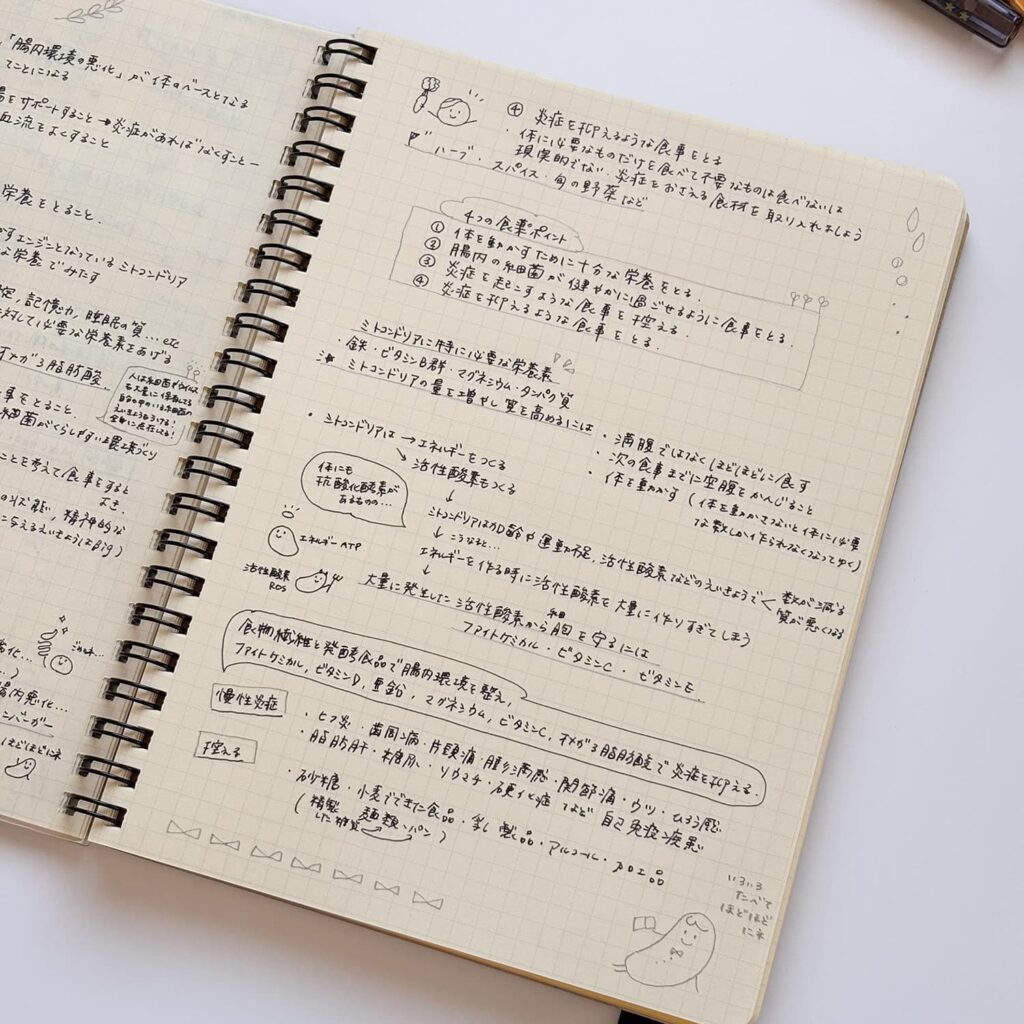 「腸内環境の悪化」が体のベースとなる
てことになる
腸をサポートすること→炎症があればなくすこと
血流をよくすること
栄養をとること.
かすエンジンとなっているミトコンドリア
な栄養でみたす
記憶力, 睡眠の質…etc
対して必要な栄養素をあげる
オメガ3脂肪酸
人は細菌やウイルス
も大量に保有してる
事をとること.
細菌がくらしやすい環境づくり
ことを考えて食事をすると
よき.
の状態, 精神的な
に与えるえいきょうはBig)
劣化…
腸内悪化…
ンバーガー
ほどほどにネ
④ 炎症を抑えるような食事をとる
・体に必要なものだけを食べて不要なものは食べないは
現実的でない・炎症をおさえる食材を取り入れましょう
ハーブ・スパイス・旬の野菜など
4つの食薬ポイント
① 体を動かすために十分な栄養をとる.
② 腸内の細菌が健やかに過ごせるように食事をとる.
③ 炎症を起こすような食事を控える.
④ 炎症を抑えるような食事をとる.
ミトコンドリアに特に必要な栄養素
・鉄・ビタミンB群・マグネシウム・タンパク質
※ ミトコンドリアの量を増やし質を高めるには
・満腹ではなくほどほどに食す
・次の食事までに空腹をかんじること
・体を動かす(体を動かさないと体に必要
な数しか作られなくなってゆく)
・ミトコンドリアは→エネルギーをつくる
↘ 活性酸素もつくる
体にも
抗酸化酵素が
あるものの…
↓
ミトコンドリアは加齢や運動不足, 活性酸素などのえいきょうで<数が減る
質が悪くなる
↓こうなると…
エネルギーを作る時に活性酸素を大量に作りすぎてしまう
↓
エネルギーATP
活性酸素
ROS
大量に発生した活性酸素から細胞を守るには
ファイトケミカル・ビタミンC・ビタミンE
食物繊維と発酵食品で腸内環境を整え,
ファイトケミカル, ビタミンD, 亜鉛, マグネシウム, ビタミンC, オメガ3脂肪酸で炎症を抑える.
慢性炎症
・ヒフ炎・歯周病・片頭痛・膨満感・関節痛・ウツ・ひろう感
・脂肪肝・糖尿・リウマチ・硬化症など自己免疫疾患
控える
・砂糖・小麦でできた食品・乳製品・アルコール・加工品
(精製した雑質 麺類・パン)
いろいろ
たべて
ほどほど
にネ